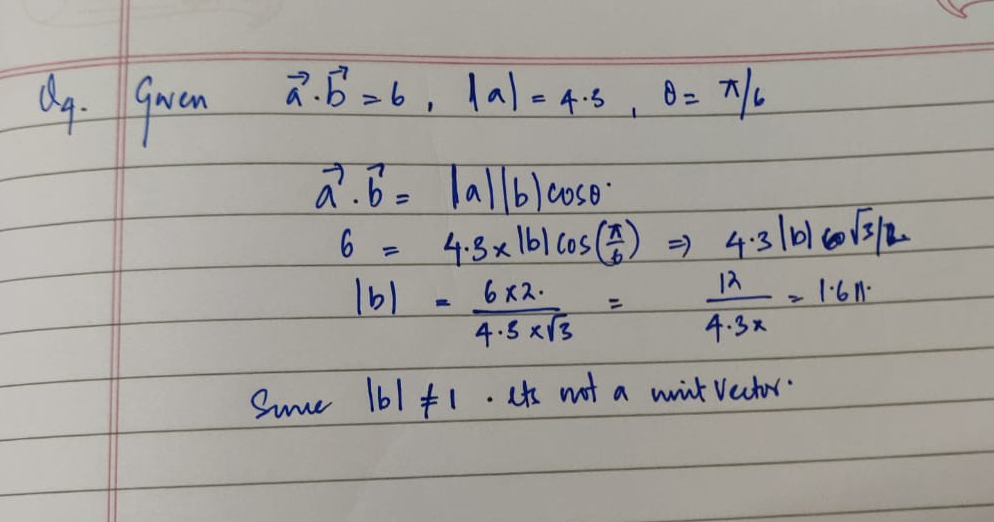 Q9. Given a⃗.b⃗ = 6, |a| = 4.3, θ = π/6
a⃗.b⃗ = |a||b|cosθ.
6 = 4.3 x |b| cos(π/6) ⇒ 4.3 |b| √3/2
|b| = 6x2. / 4.3 x √3 = 12 / 4.3x = 1.611.
Since |b| ≠ 1. its not a unit vector.